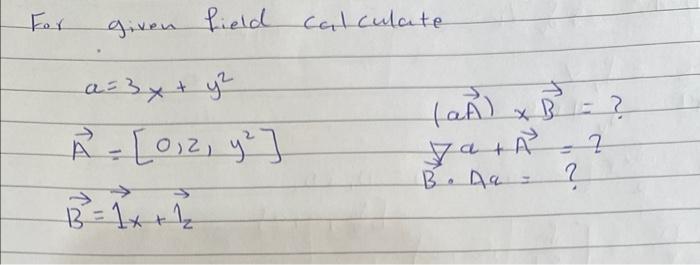 For given field calculate
a = 3x + y²
A⃗ = [0,2, y²]
B⃗ = 1⃗x + 1⃗z
(aA⃗) × B⃗ = ?
∇a + A⃗ = ?
B⃗ · Aa = ?